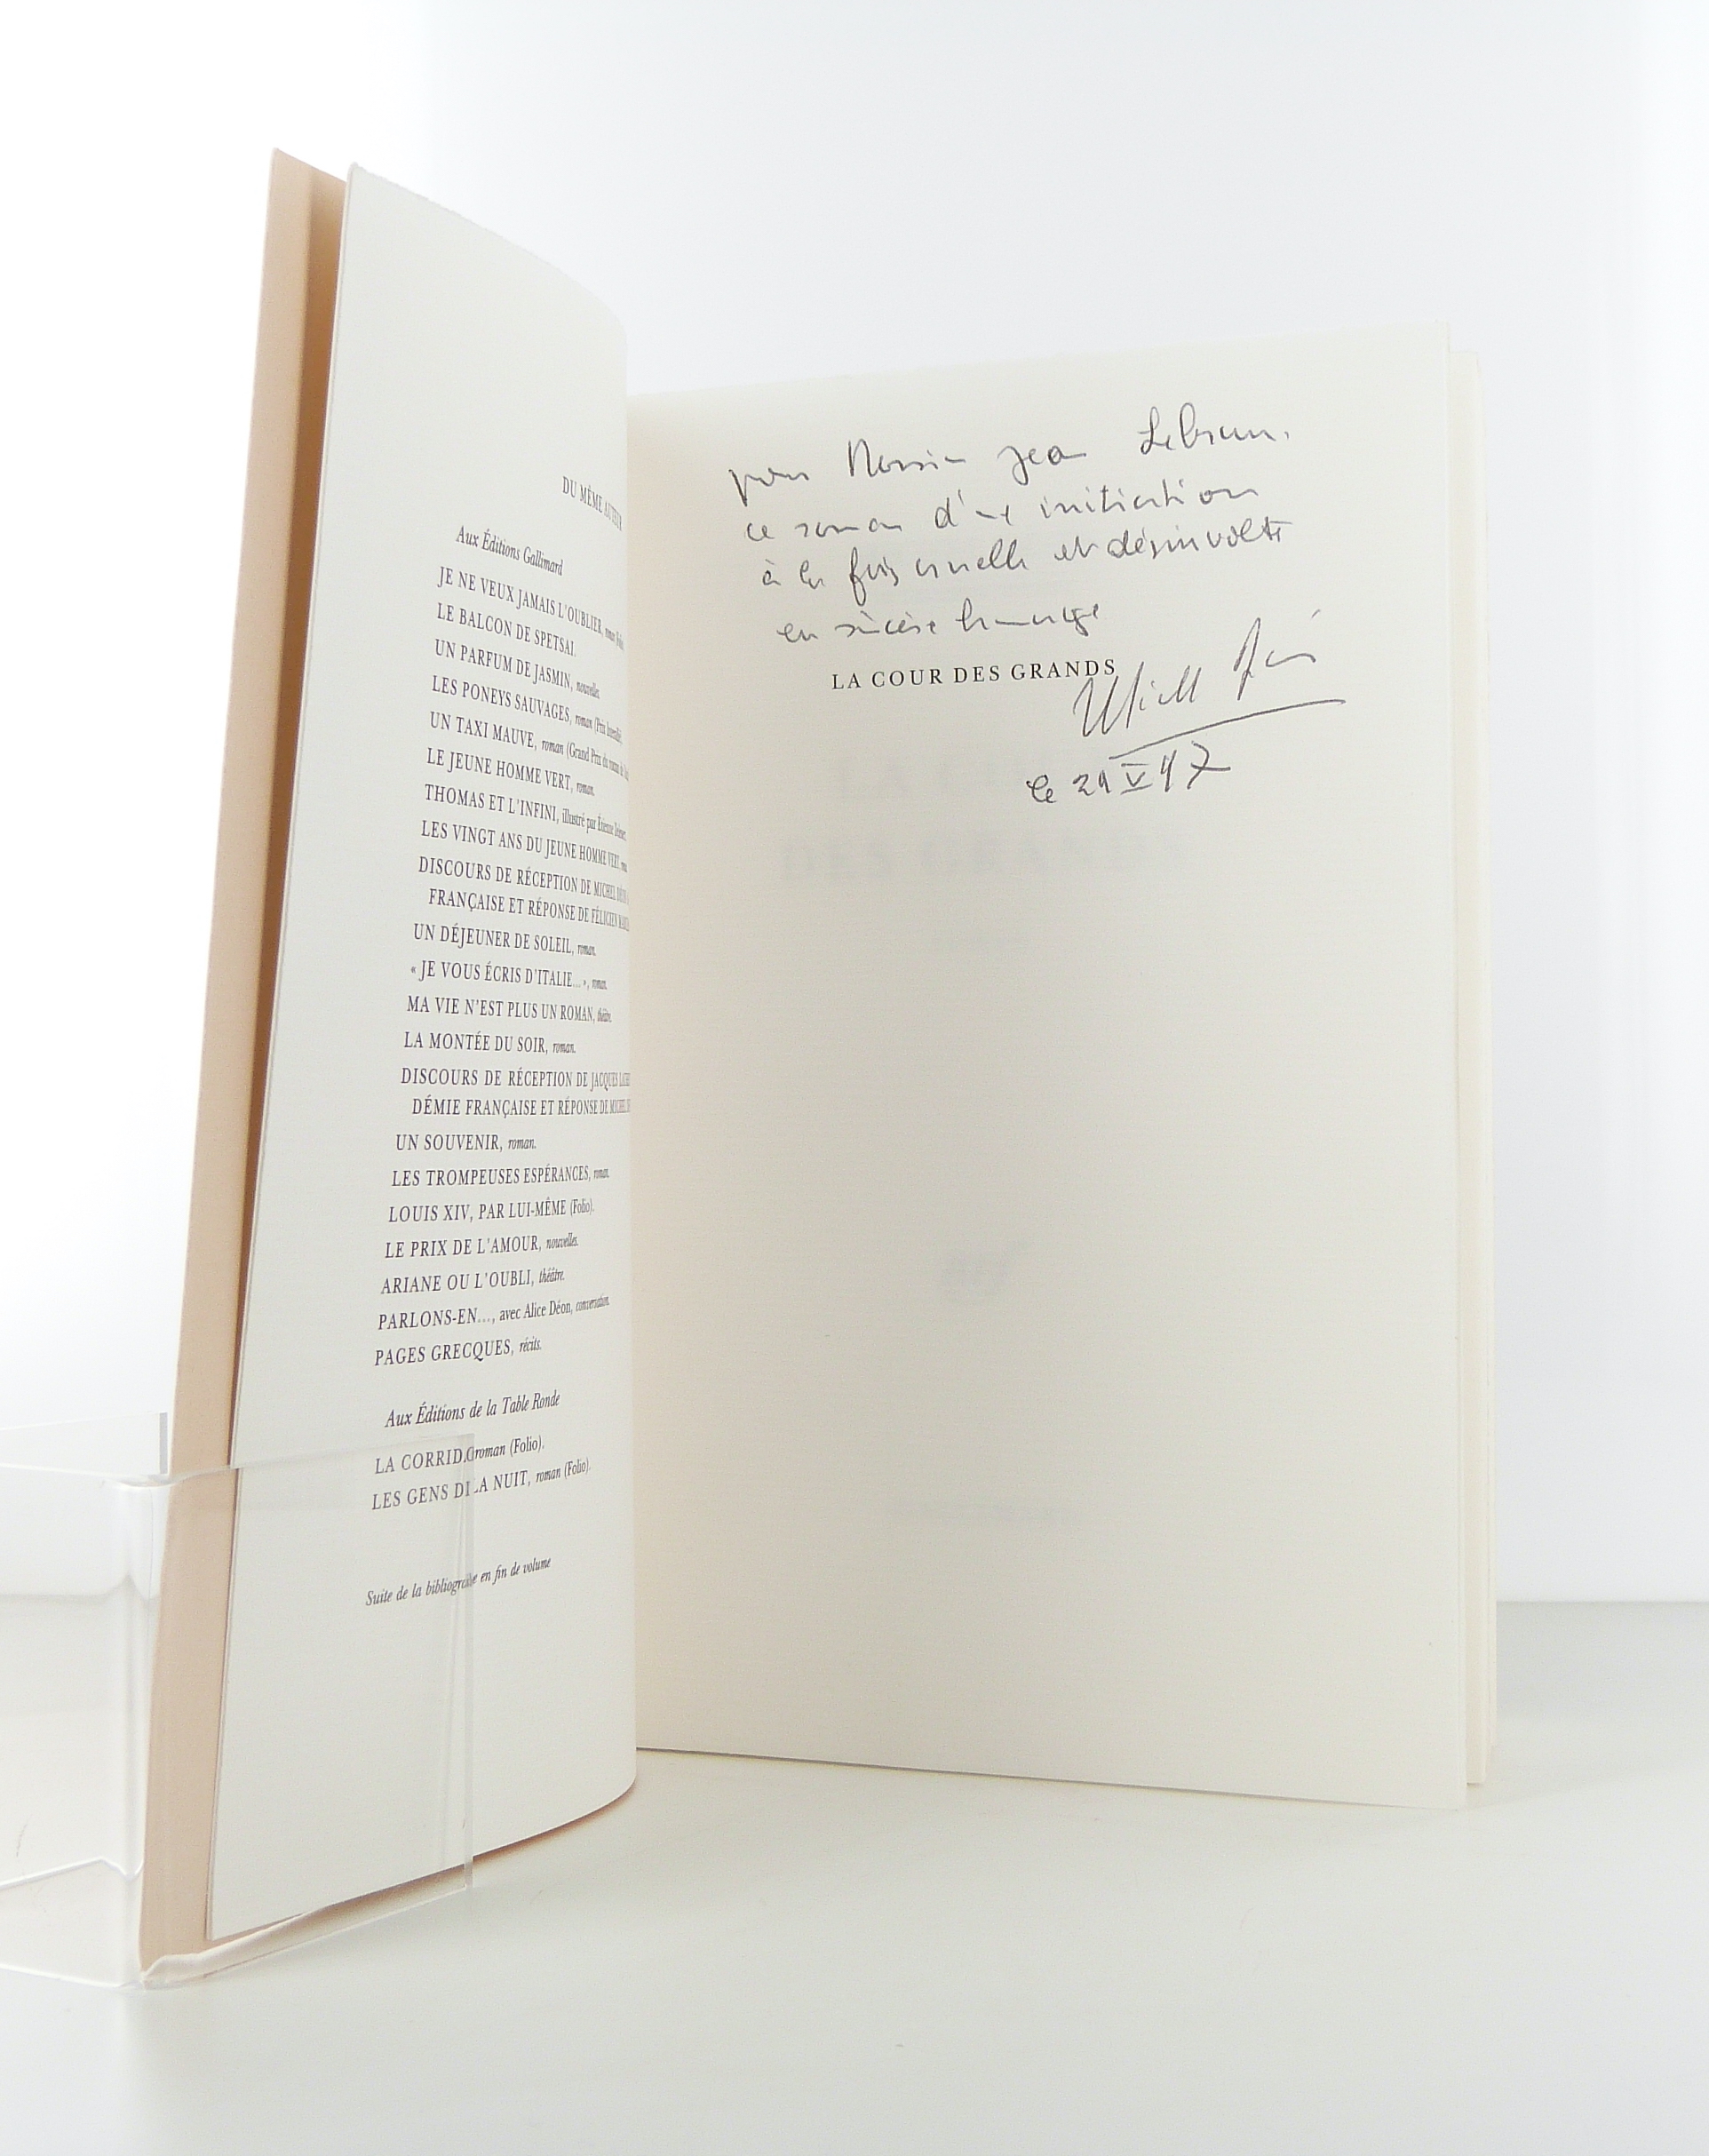 DU MÊME AUTEUR
Aux Éditions Gallimard
JE NE VEUX JAMAIS L'OUBLIER, roman
LE BALCON DE SPETSAI.
UN PARFUM DE JASMIN, nouvelles.
LES PONEYS SAUVAGES, roman (Prix Interallié)
UN TAXI MAUVE, roman (Grand Prix du roman de
LE JEUNE HOMME VERT, roman.
THOMAS ET L'INFINI, illustré par Étienne Delessert.
LES VINGT ANS DU JEUNE HOMME VERT,
DISCOURS DE RÉCEPTION DE MICHEL
FRANÇAISE ET RÉPONSE DE FÉLICIEN
UN DÉJEUNER DE SOLEIL, roman.
« JE VOUS ÉCRIS D'ITALIE... », roman.
MA VIE N'EST PLUS UN ROMAN, théâtre.
LA MONTÉE DU SOIR, roman.
DISCOURS DE RÉCEPTION DE JACQUES
DÉMIE FRANÇAISE ET RÉPONSE DE
UN SOUVENIR, roman.
LES TROMPEUSES ESPÉRANCES, roman.
LOUIS XIV, PAR LUI-MÊME (Folio).
LE PRIX DE L'AMOUR, nouvelles.
ARIANE OU L'OUBLI, théâtre.
PARLONS-EN..., avec Alice Déon, conversation.
PAGES GRECQUES, récits.
Aux Éditions de la Table Ronde
LA CORRIDA, roman (Folio).
LES GENS DE LA NUIT, roman (Folio).
Suite de la bibliographie en fin de volume
pour Monsieur Jean Lebrun,
ce roman d'une initiation
à la fois cruelle et désinvolte
en sincère hommage
LA COUR DES GRANDS
Michel Déon
le 29 V 97